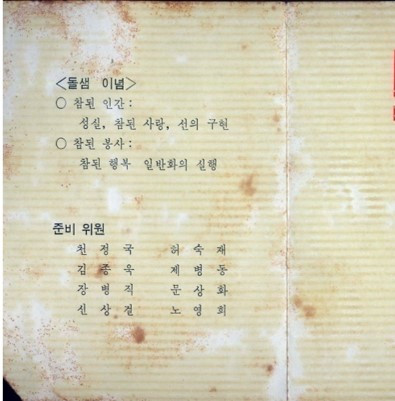 <돌샘 이념>
○ 참된 인간 :
성실, 참된 사랑, 선의 구현
○ 참된 봉사 :
참된 행복 일반화의 실행
준비 위원
천 정 국 허 숙 재
김 종 욱 제 병 동
장 병 직 문 상 화
신 상 결 노 영 희